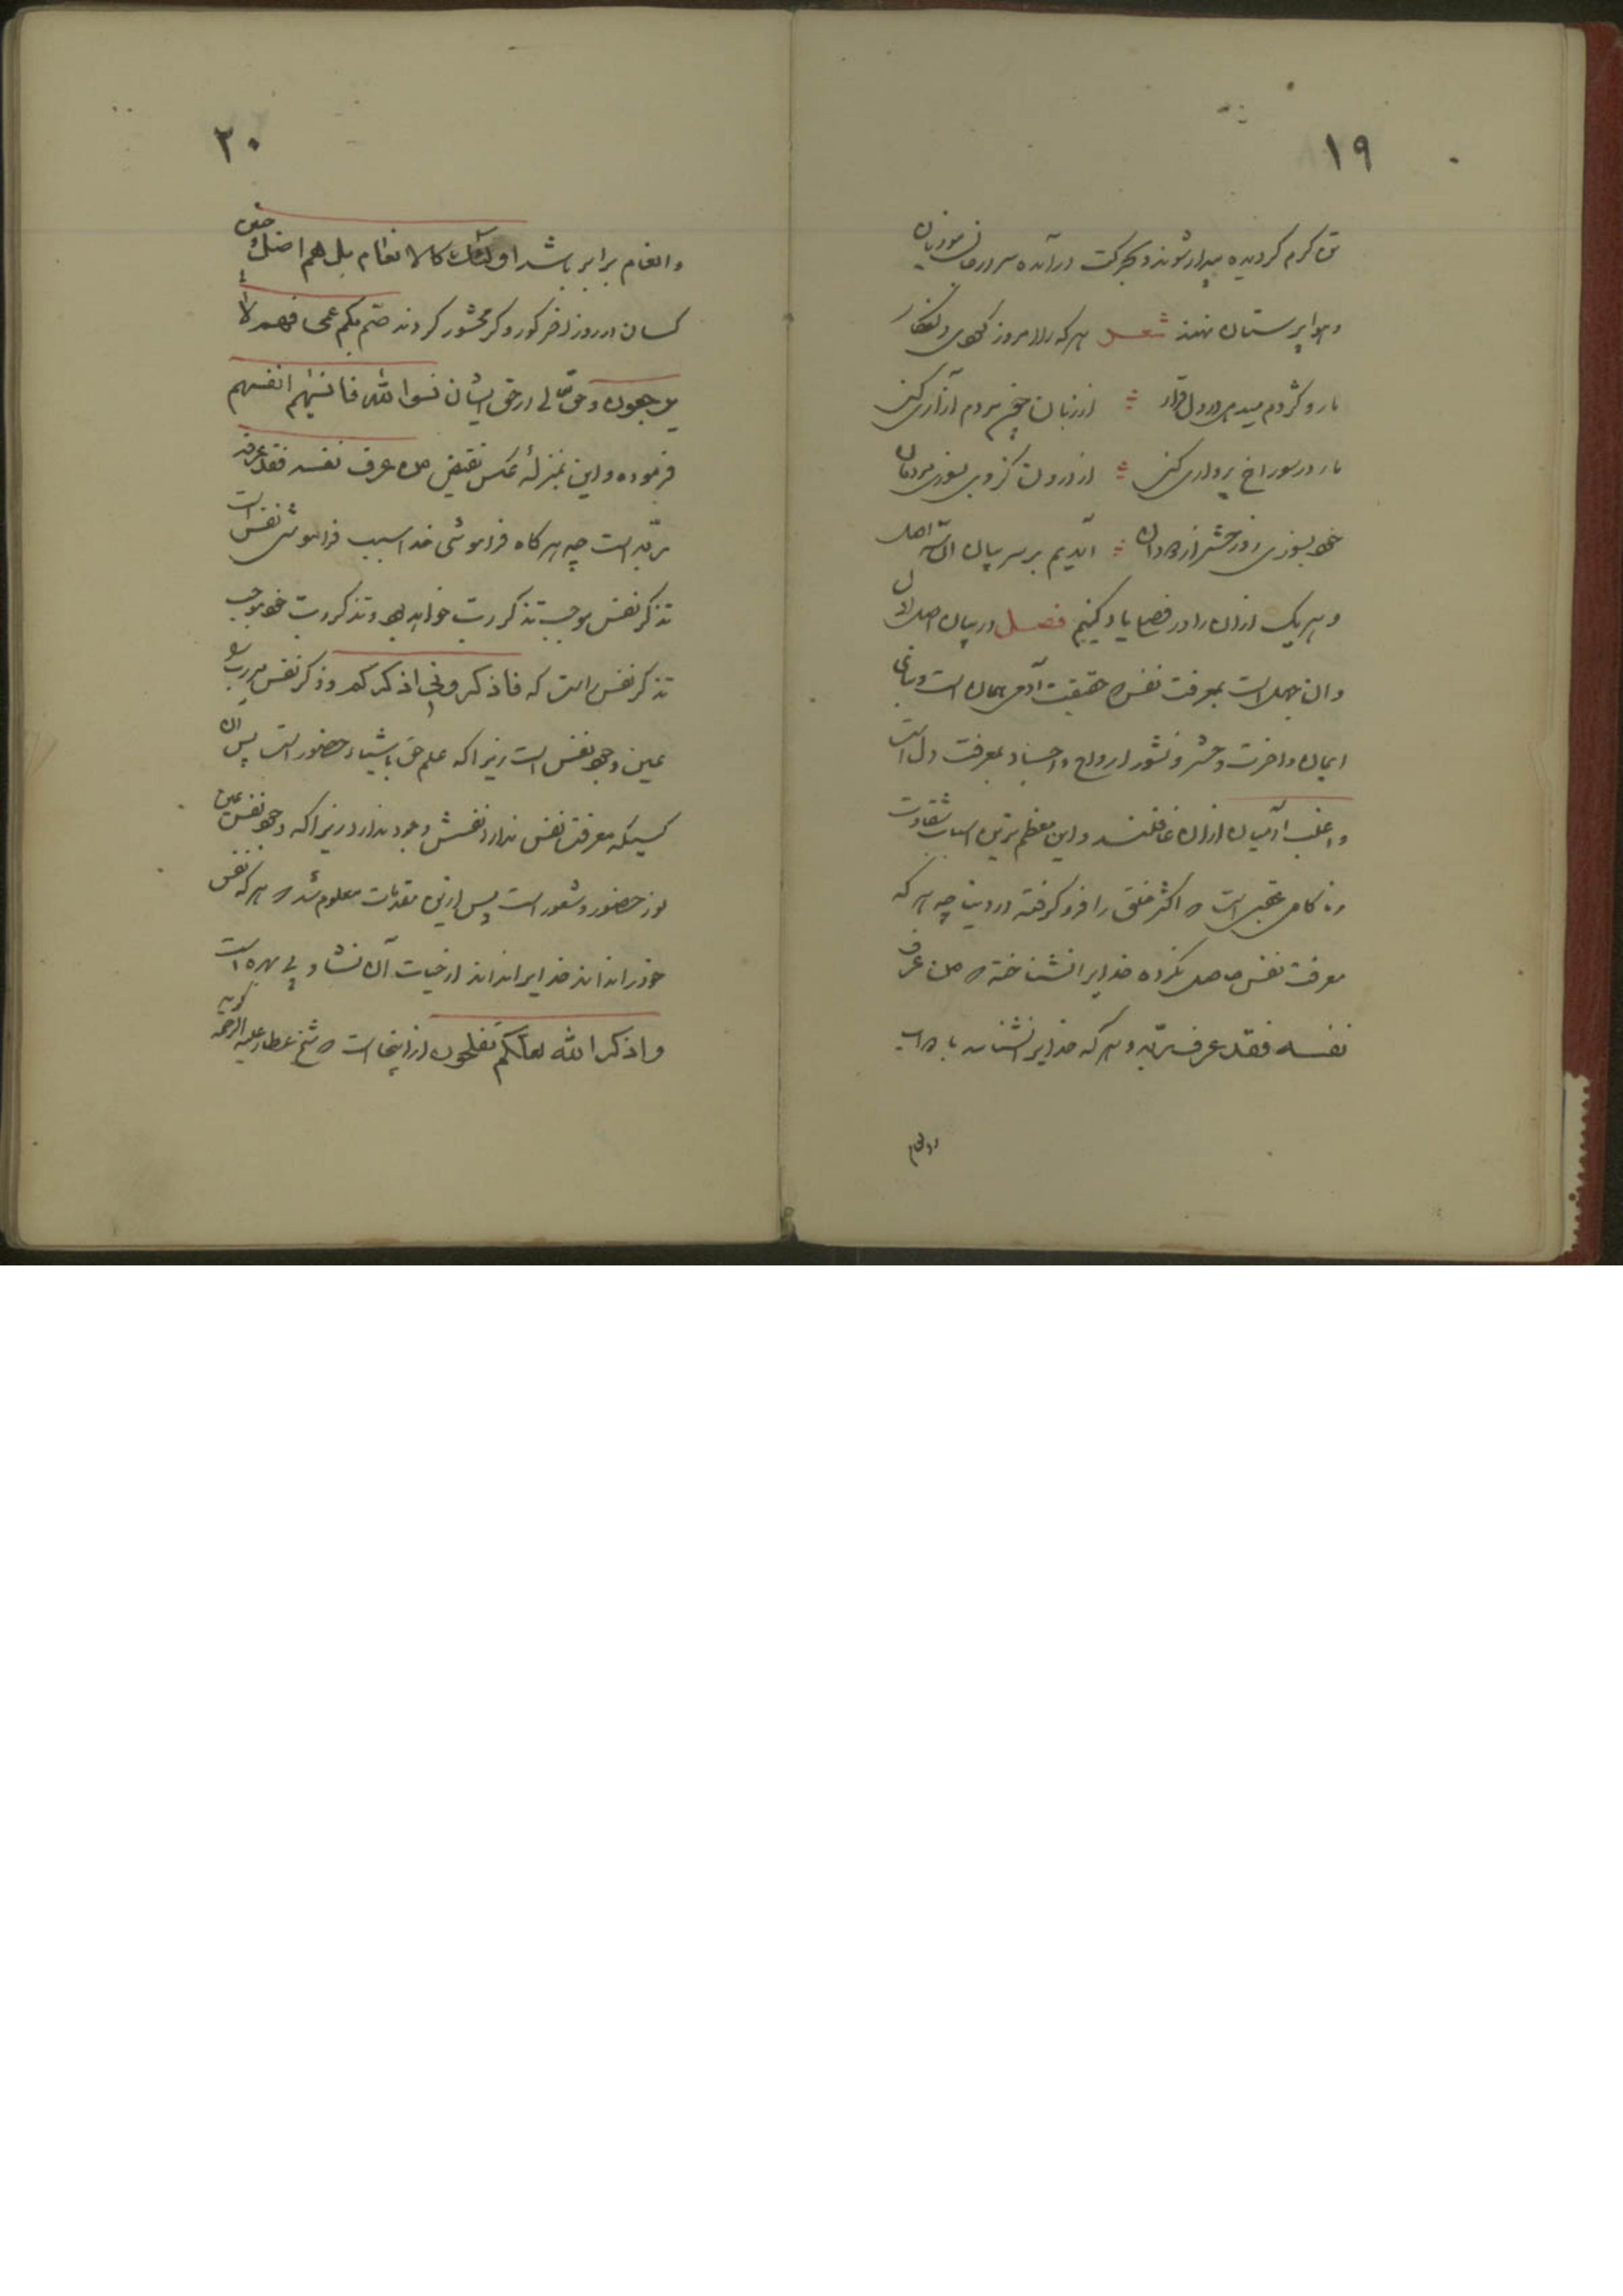 ۱۹
کرم گردیده بیدار شوند و بحرکت درآمده سر در جان موذیان
و هواپرستان نهند شعر هر که را امروز
مار و گژدم میدهی در دل قرار ؞ از زبان مردم آزاری کنی
مار در سوراخ پرواری کنی ؞ از درونت
بسوزی روز حشر از ؞ آمدیم بر سر بیان آن سه اصل
و هر یک ازان را در فصلی یاد کنیم فصل در بیان اصل اول
و آن جهل است بمعرفت نفس که حقیقت آدمی همان است و بنای
ایمان و اخرت و حشر و نشور ارواح و اجساد بمعرفت دل است
و اغلب آدمیان ازان غافلند و این معظم‌ترین اسباب شقاوت
و ناکامی است که اکثر خلق را فرو گرفته در دنیا چه هر که
معرفت نفس حاصل نکرده خدایرا نشناخته که من عرف
نفسه فقد عرف ربّه و هر که خدایرا نشناسد با دواب
و انعام
۲۰
و انعام برابر باشد اولئک کالانعام بل هم اضل چنین
کسان در روز اخر کور و کر محشور کردند صمّ بکم عمی فهم لا
یرجعون و حق تعالی در حق ایشان نسوا الله فانسیهم انفسهم
فرموده و این بمنزلهٔ عکس نقیض من عرف نفسه فقد عرف
ربّه است چه هرگاه فراموشی خدا سبب فراموشی نفس است
تذکر نفس موجب تذکر رب خواهد بود و تذکر رب خود موجب
تذکر نفس است که فاذکرونی اذکرکم و ذکر نفس مر رب را
عین وجود نفس است زیرا که علم حق باشیاء حضور است پس آن
کسیکه معرفت نفس ندارد نفسش وجود ندارد زیرا که وجود نفس عین
نور حضور و شعور است پس ازین مقدمات معلوم شد که هر که نفس
خود را نداند خدایرا نداند از حیات آن نشاه بی بهره است
واذکرا الله لعلکم تفلحون از اینجاست که شیخ عطار علیه الرحمه گوید